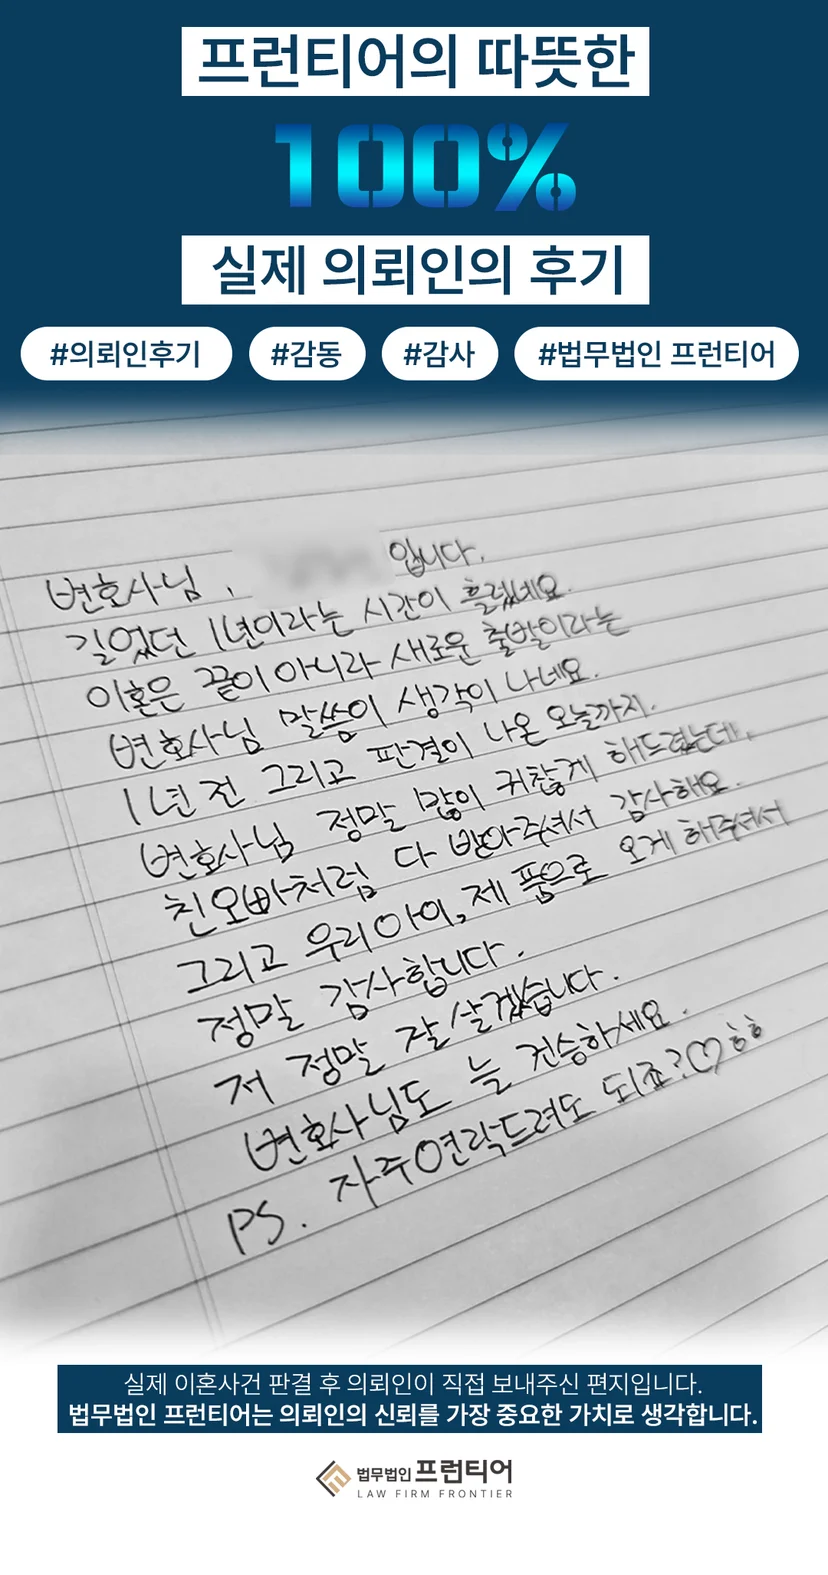 프런티어의 따뜻한
100%
실제 의뢰인의 후기
#의뢰인후기 #감동 #감사 #법무법인 프런티어
변호사님, 입니다.
길었던 1년이라는 시간이 흘렀네요.
이혼은 끝이 아니라 새로운 출발이라는
변호사님 말씀이 생각이 나네요.
1년 전 그리고 판결이 나온 오늘까지.
변호사님 정말 많이 귀찮게 해드렸는데,
친오빠처럼 다 받아주셔서 감사해요.
그리고 우리아이, 제 품으로 오게 해주셔서
정말 감사합니다.
저 정말 잘 살겠습니다.
변호사님도 늘 건승하세요.
PS. 자주연락드려도 되죠?♡ㅎㅎ
실제 이혼사건 판결 후 의뢰인이 직접 보내주신 편지입니다.
법무법인 프런티어는 의뢰인의 신뢰를 가장 중요한 가치로 생각합니다.
법무법인 프런티어
LAW FIRM FRONTIER